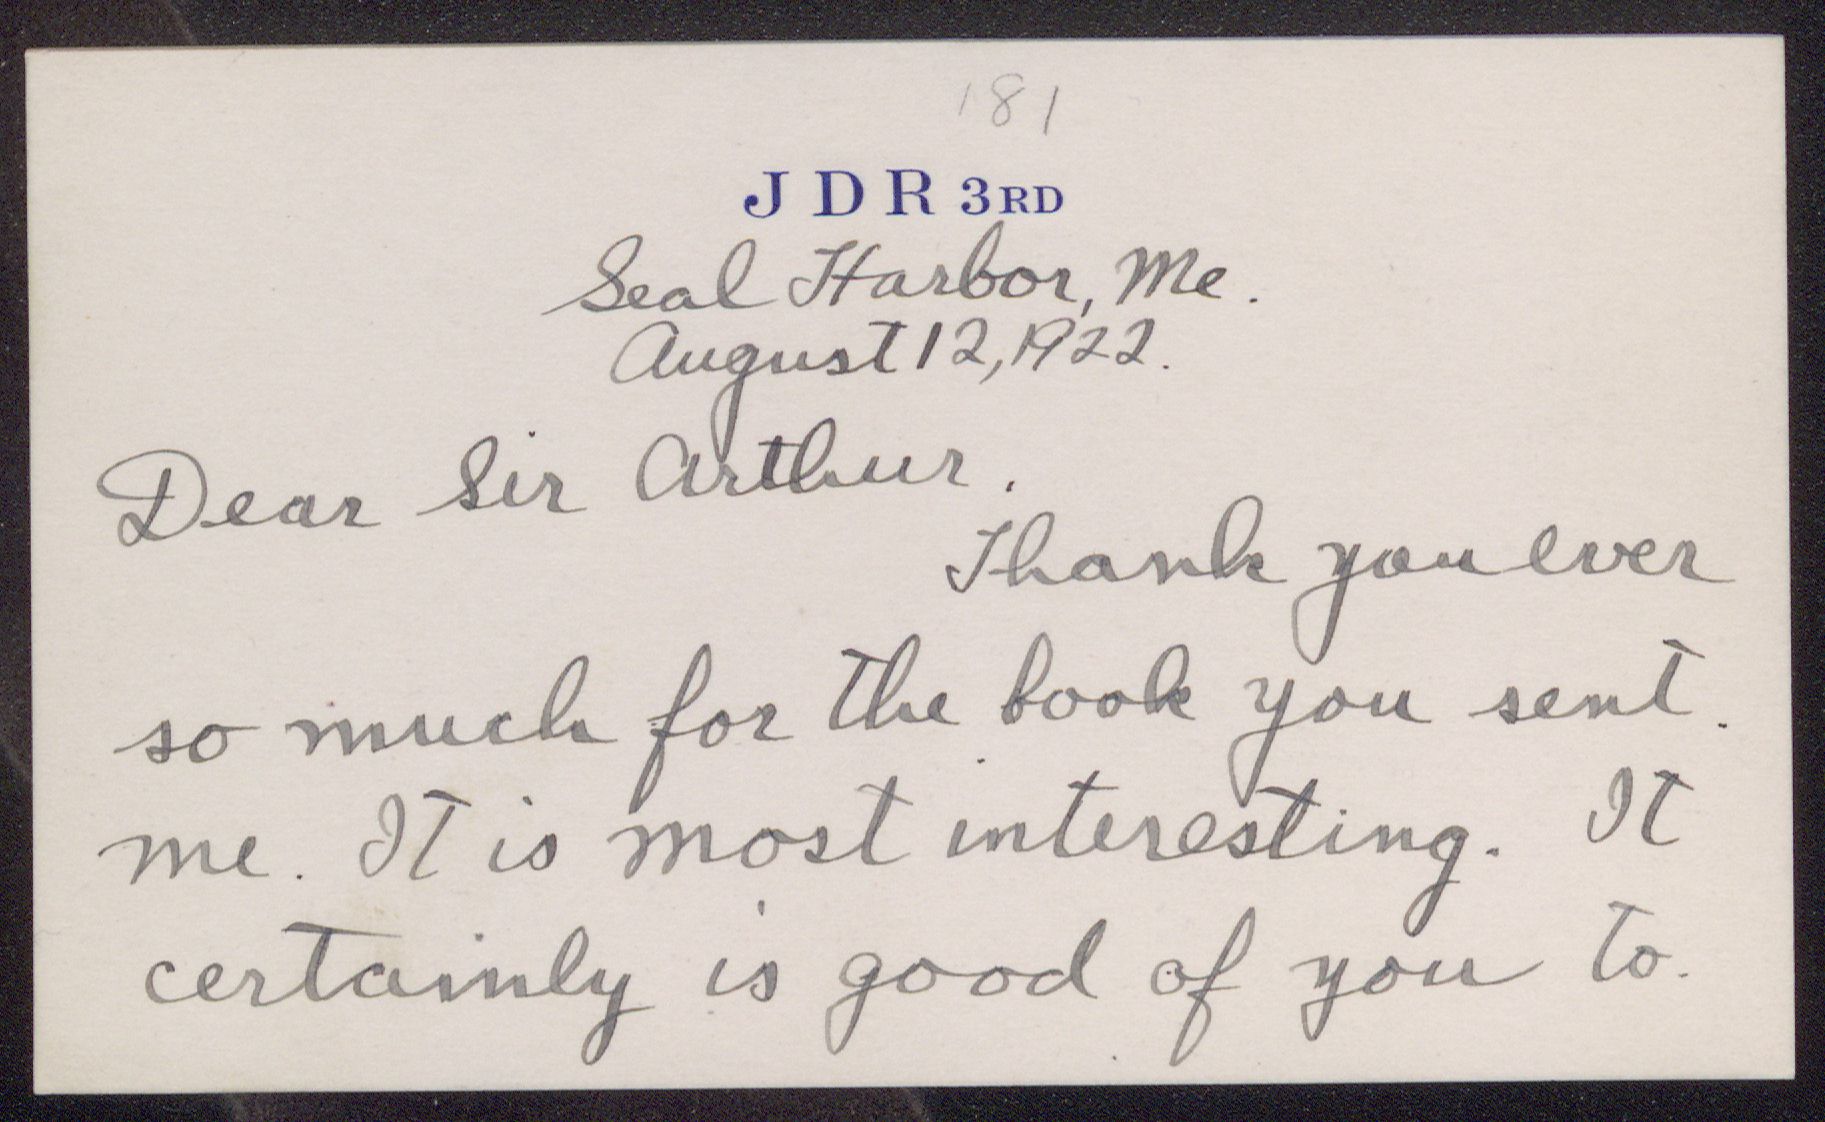 181
J D R 3RD
Seal Harbor, Me.
August 12, 1922.
Dear Sir Arthur.
Thank you ever
so much for the book you sent.
me. It is most interesting. It
certainly is good of you to.